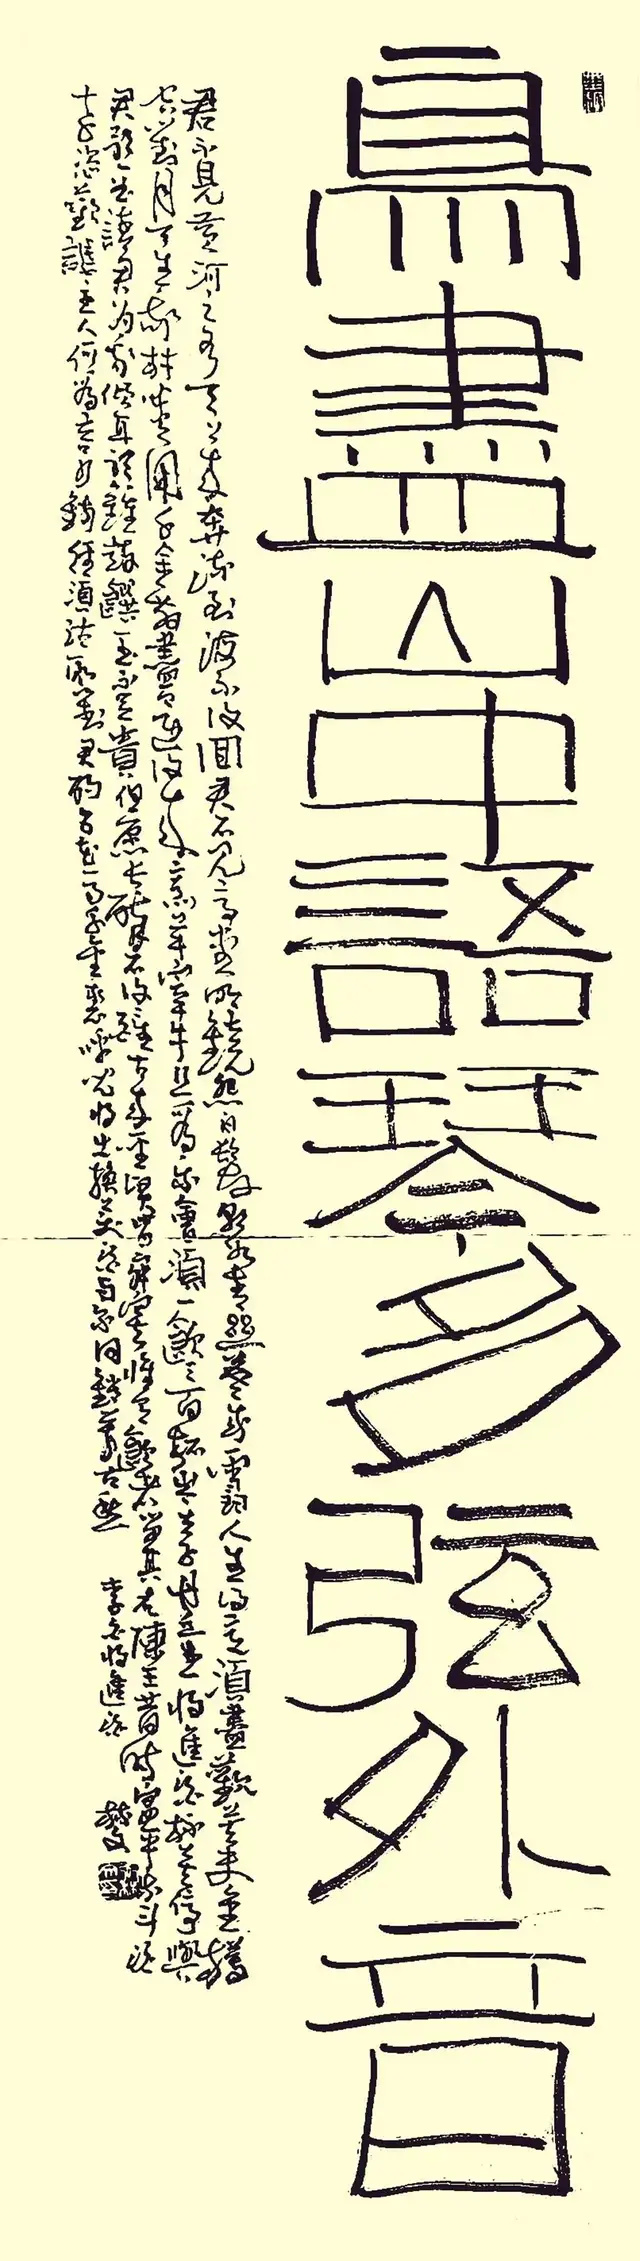 鳥盡山中語琴多弦外音
君不見黃河之水天上來奔流到海不復回君不見高堂明鏡悲白髮朝如青絲暮成雪人生得意須盡歡莫使金樽
空對月天生我材必有用千金散盡還復來烹羊宰牛且爲樂會須一飲三百杯岑夫子丹丘生將進酒杯莫停與
君歌一曲請君爲我傾耳聽鐘鼓饌玉不足貴但願長醉不復醒古來聖賢皆寂寞惟有飲者留其名陳王昔時宴平樂斗酒
十千恣歡謔主人何爲言少錢徑須沽取對君酌五花馬千金裘呼兒將出換美酒與爾同銷萬古愁 李白將進酒